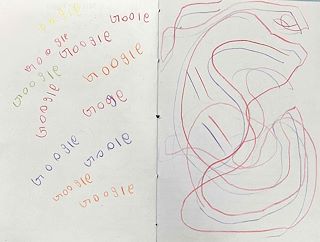 google
google
google
google
google
google
googe
google
google
google
google
google